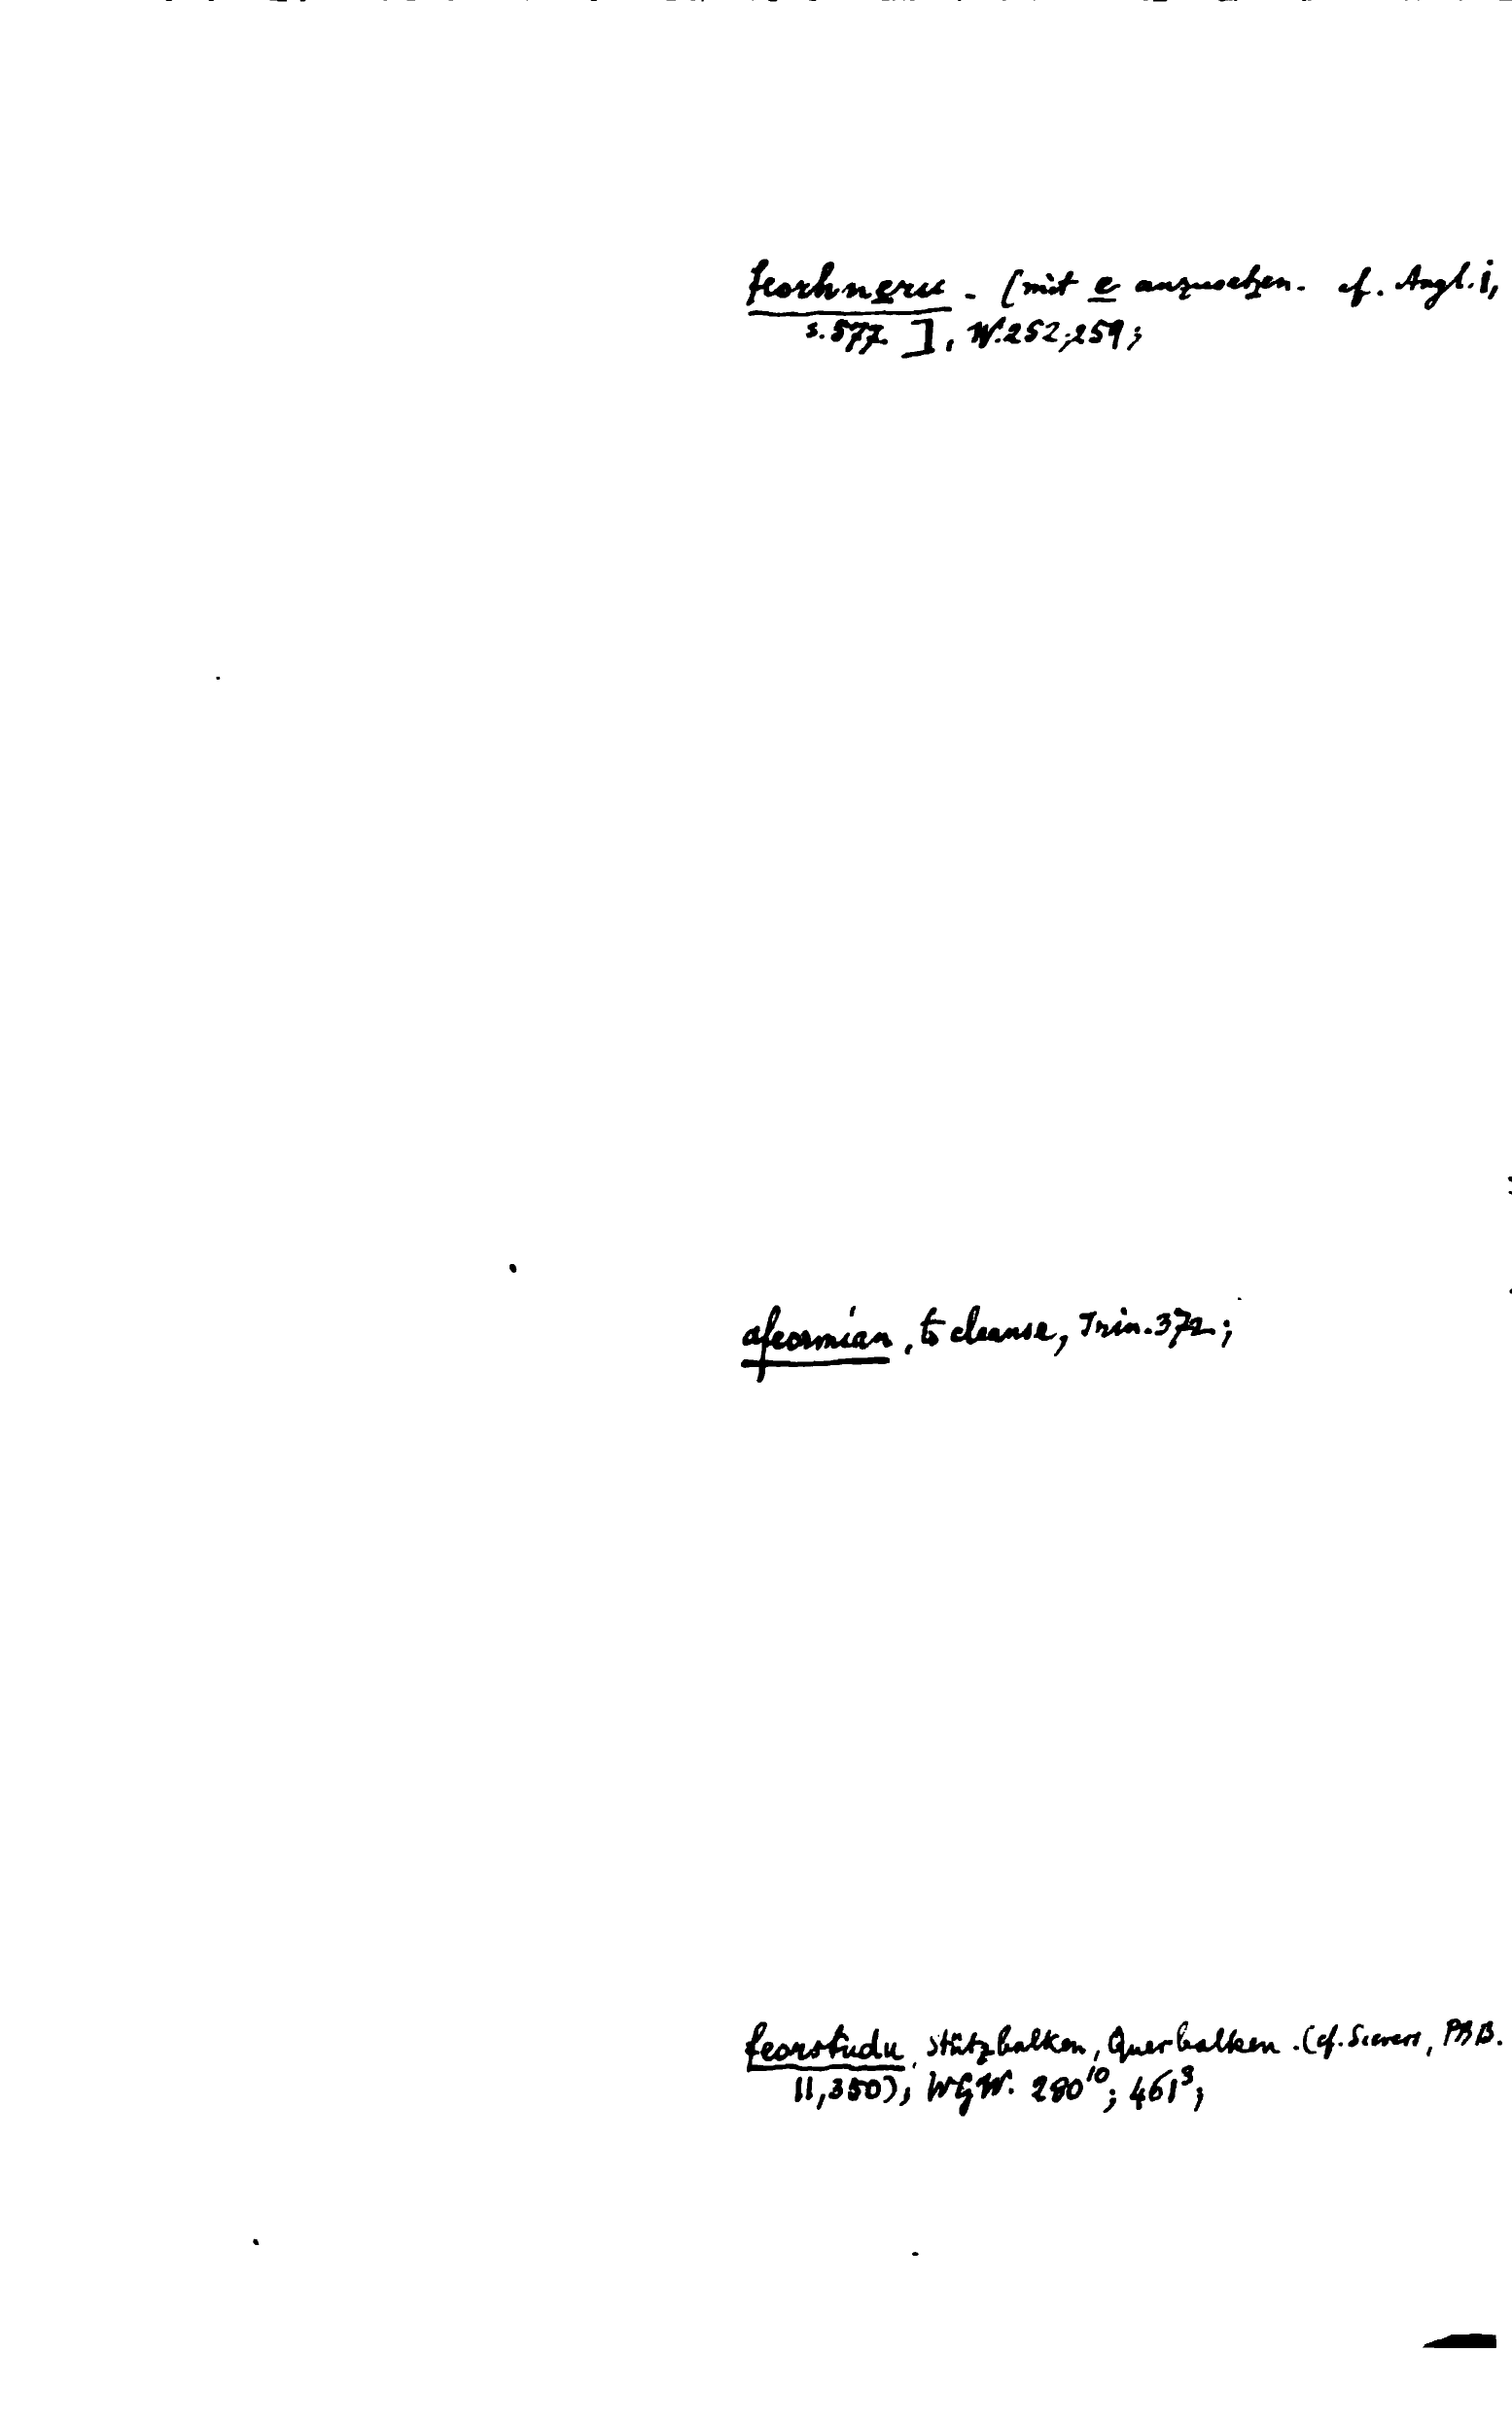 feorhneru - [mit e anzusetzen. cf. Angl. i,
s. 577. ], W. 252; 259;
afeormian, to cleanse, Trin. 372;
feorstudu, stützbalken, Querbalken. (cf. Sievers, PBB.
11,350), WGW. 280¹⁰; 461³;